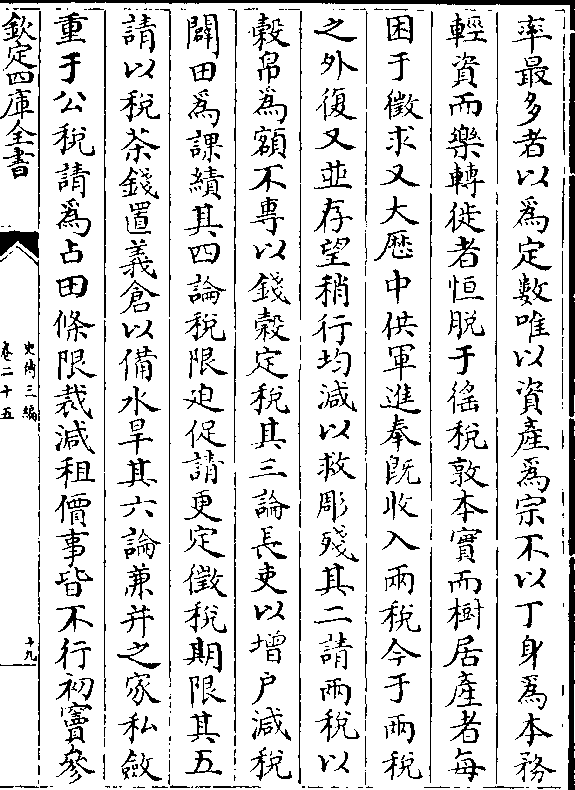 率最多者以為定數唯以資產為宗不以丁身為本務
輕資而樂轉徙者恒脱于徭税敦本實而樹居產者每
困于徵求又大厯中供軍進奉既收入兩税今于兩税
之外復又並存望稍行均減以救彫殘其二請兩税以
穀帛為額不專以錢榖定税其三論長吏以增户減税
闢田為課績其四論税限迫促請更定徵税期限其五
請以税茶錢置義倉以備水旱其六論兼并之家私斂
重于公税請為占田條限裁減租價事皆不行初竇參
欽定四庫全書
史傳三編
卷二十五
十九